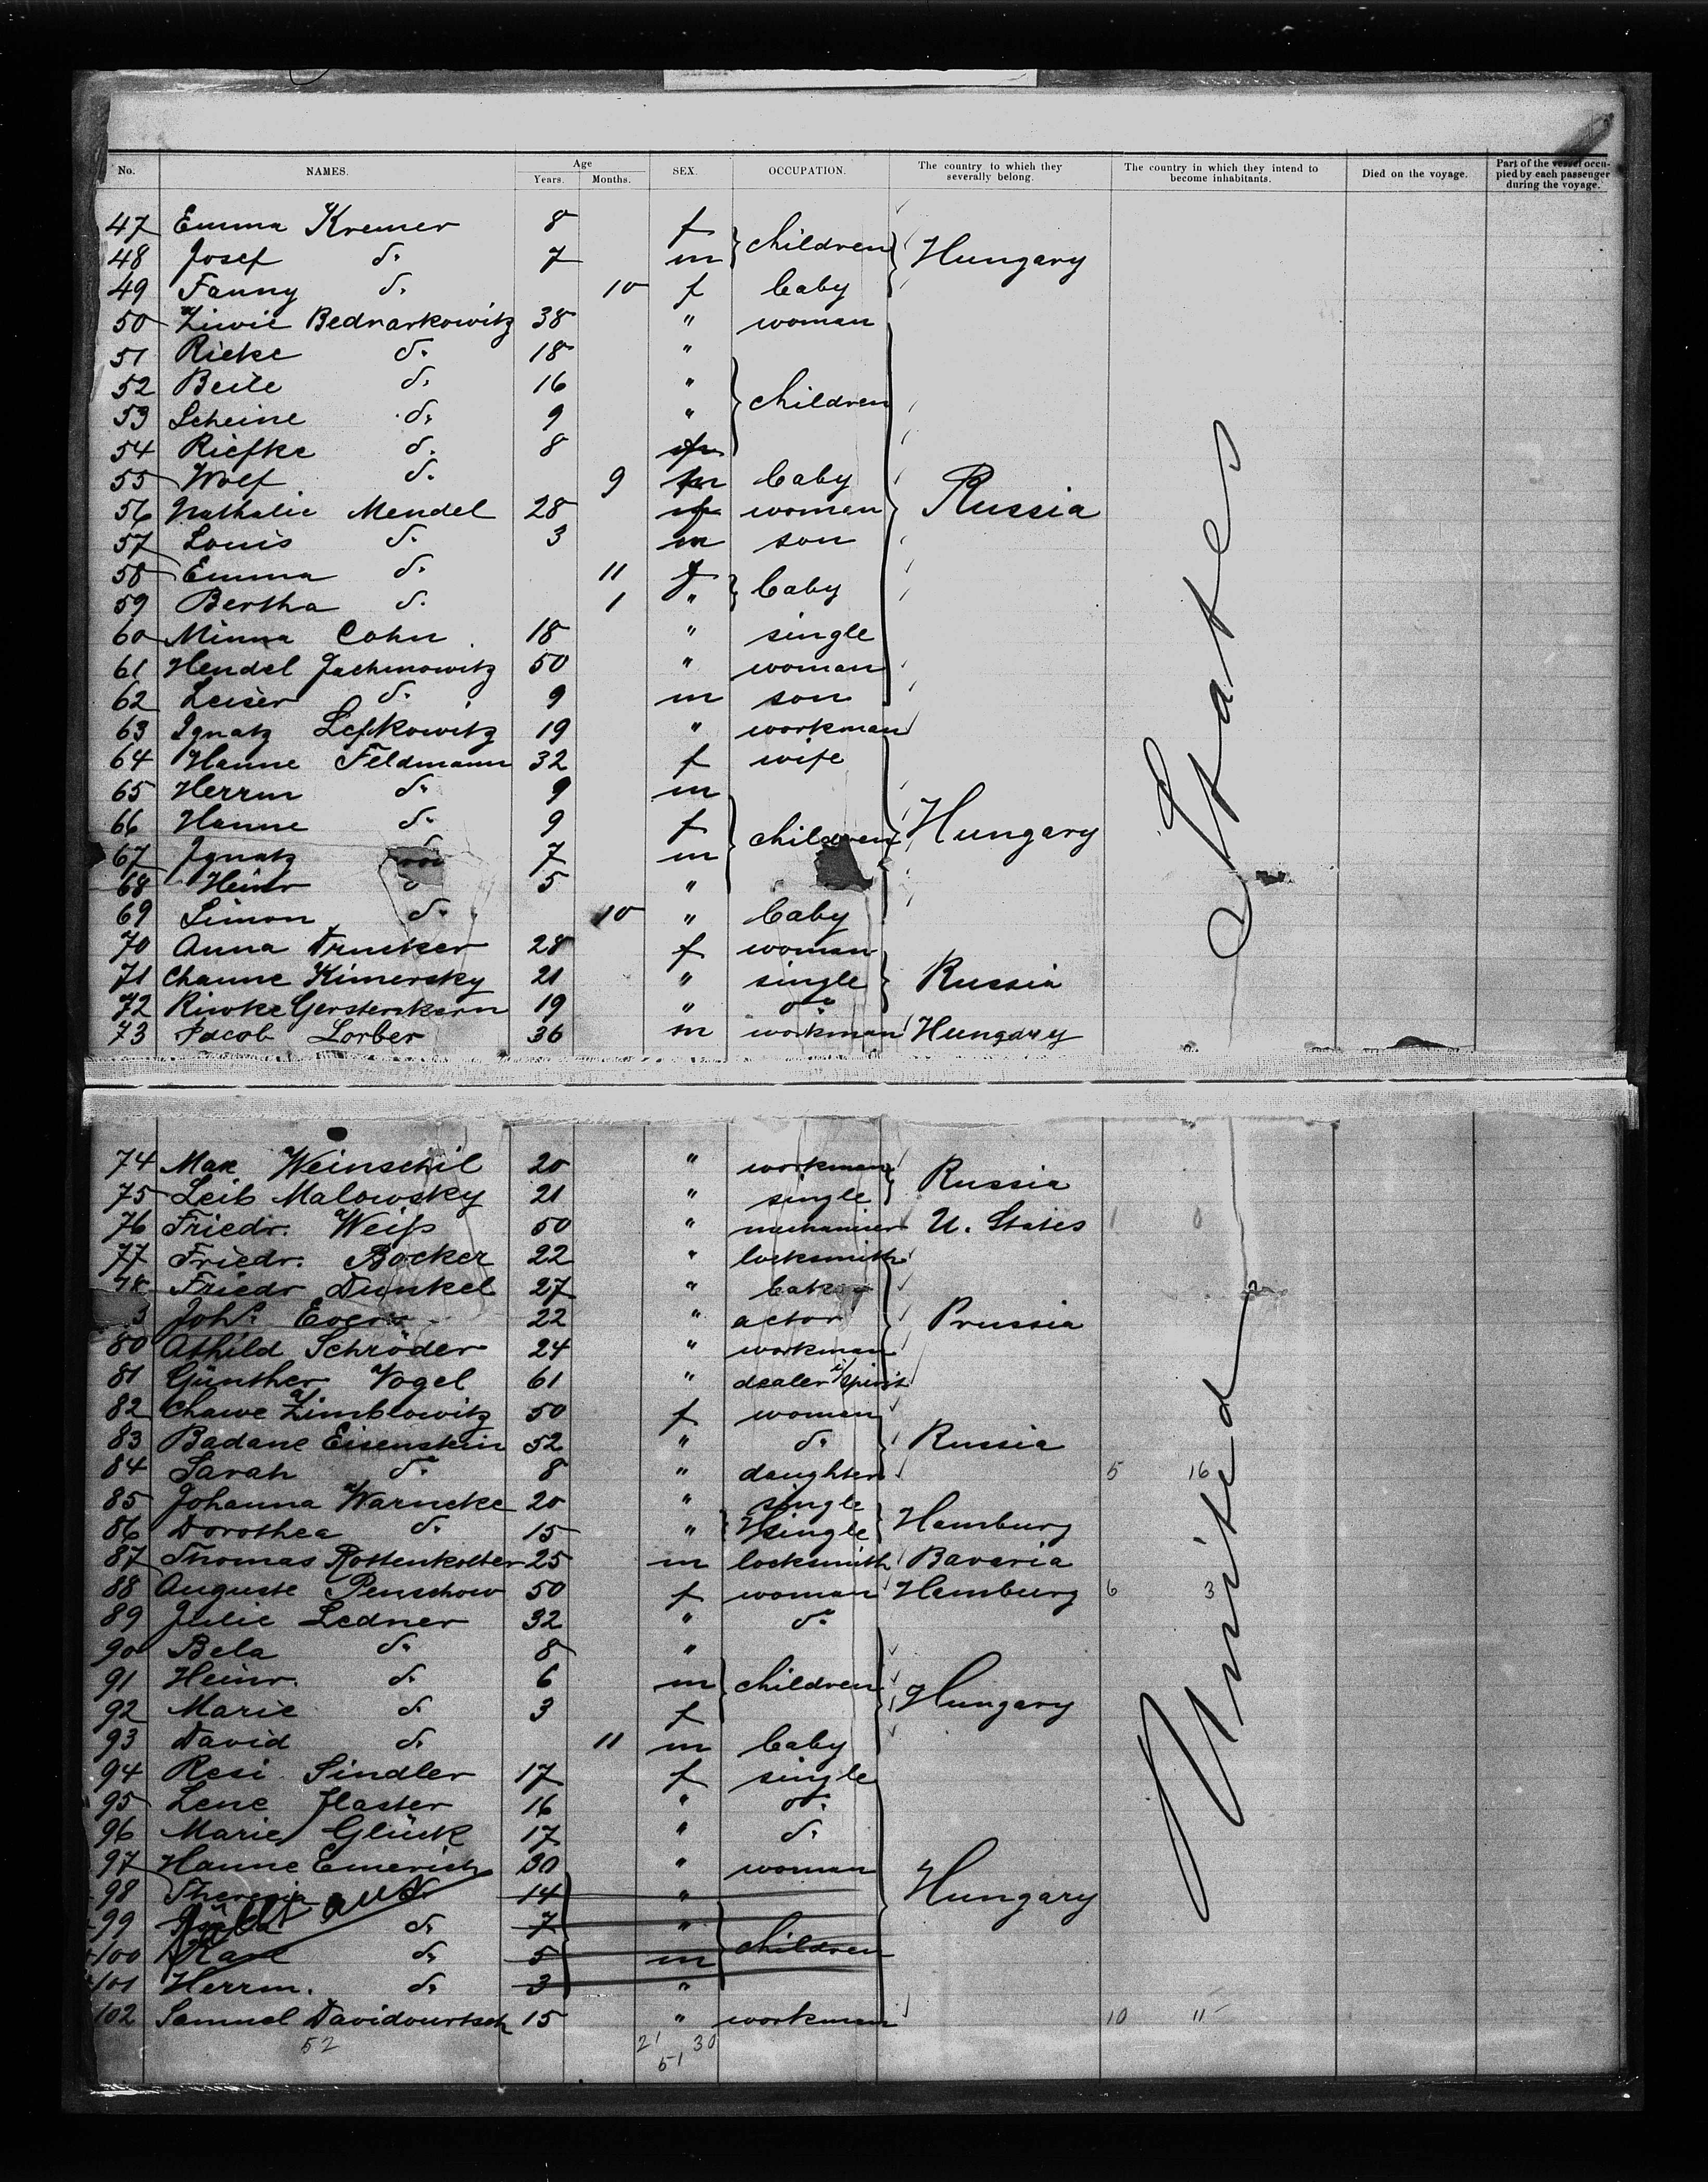 No. NAMES. Age Years. Months. SEX. OCCUPATION. The country to which they severally belong. The country in which they intend to become inhabitants. Died on the voyage. Part of the vessel occupied by each passenger during the voyage.
47 Emma Kremer 8 f
48 Josef do. 7 m } children } Hungary
49 Fanny do. 10 f baby
50 Ziwie Bednarkowitz 38 " woman
51 Rieke do. 18 "
52 Beile do. 16 "
53 Scheine do. 9 " } children
54 Riefke do. 8 f
55 Wolf do. 9 m baby
56 Nathalie Mendel 28 f woman } Russia
57 Louis do. 3 m son
58 Emma do. 11 f
59 Bertha do. 1 " } baby
60 Minna Cohn 18 " single
61 Hendel Jachmowitz 50 " woman
62 Leiser do. 9 m son
63 Ignatz Lefkowitz 19 " workman
64 Hanne Feldmann 32 f wife
65 Herrm do. 9 m
66 Hanne do. 9 f } children } Hungary
67 Ignatz do. 7 m
68 Heinr do. 5 "
69 Simon do. 10 " baby
70 Anna Drucker 28 f woman
71 Channe Kimersky 21 " single } Russia
72 Riwke Gerstenkorn 19 " do.
73 Jacob Lorber 36 m workman Hungary
74 Max Weinschil 20 " workman } Russia
75 Leib Malowsky 21 " single
76 Friedr. Weiß 50 " mechanicer U. States 1 0
77 Friedr. Bocker 22 " locksmith
78 Friedr Dunkel 27 "
Joh. Evers 22 " actor } Prussia
80 Athild Schröder 24 " workman
81 Günther Vogel 61 " dealer i/spirit
82 Chawe Zimblowitz 50 f woman
83 Badane Eisenstein 52 " do. } Russia
84 Sarah do. 8 " daughter 5 16
85 Johanna Warncke 20 " single
86 Dorothea do. 15 " single } Hamburg
87 Thomas Rottenkolber 25 m locksmith Bavaria
88 Auguste Penschow 50 f woman Hamburg 6 3
89 Julie Ledner 32 " do.
90 Bela do. 8 "
91 Heinr. do. 6 m } children } Hungary
92 Marie do. 3 f
93 David do. 11 m baby
94 Resi Sindler 17 f single
95 Lene Flaster 16 " do.
96 Marie Glück 17 " do.
97 Hanne Emerich 30 " woman
98 Theresia 14 " } Hungary
99 do. 7 "
100 do. 5 m } children
101 Herrm. do. 3 "
102 Samuel Davidowitsch 15 " workman 10 11
52 21 30
51
United States